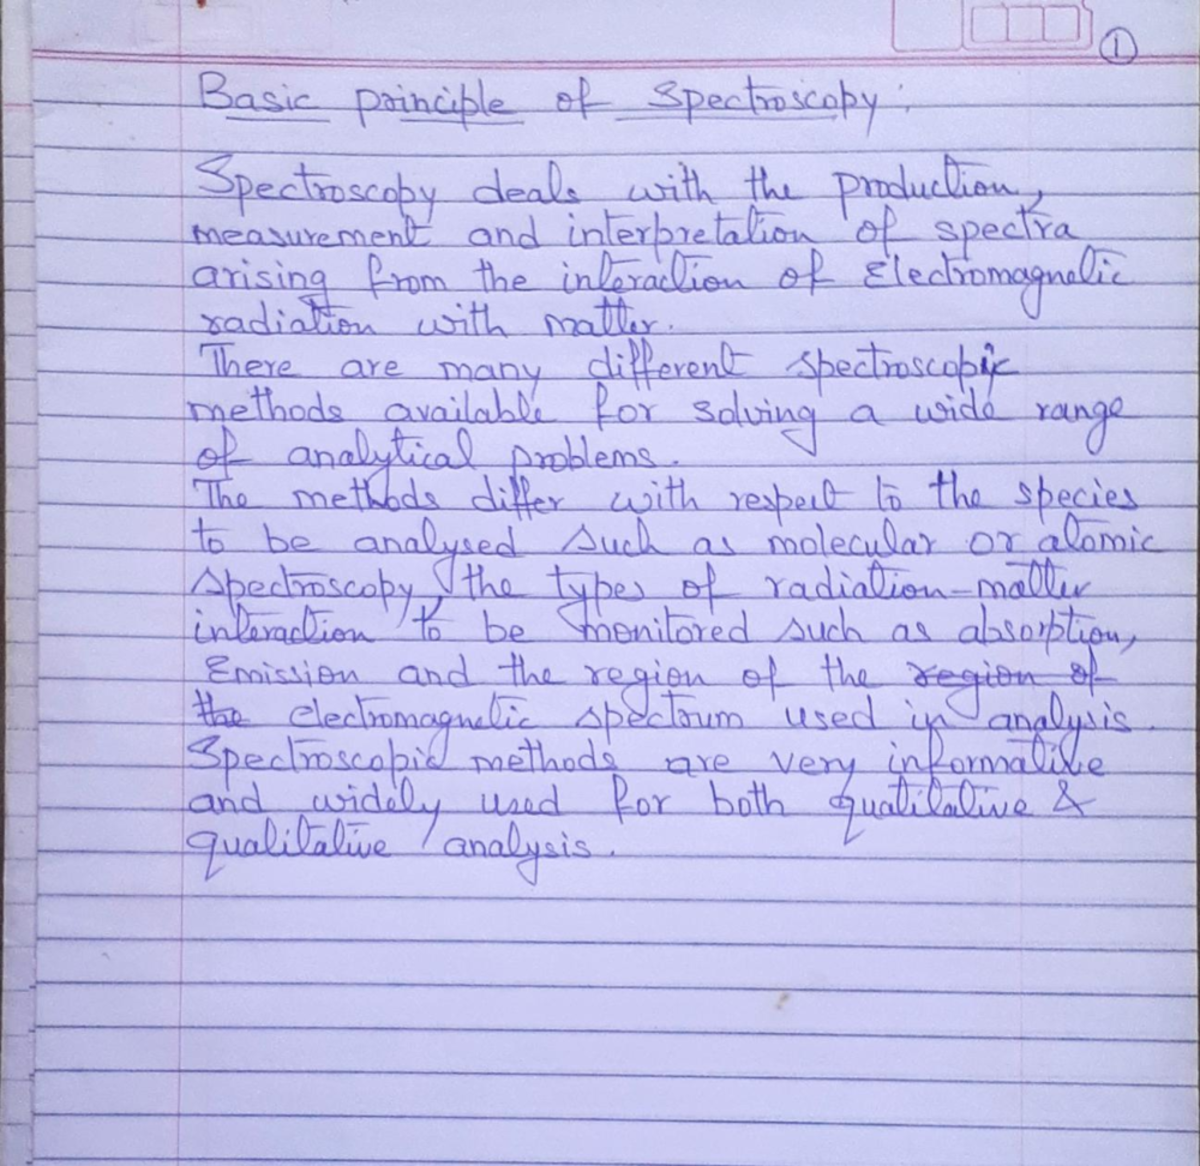 ①
Basic principle of Spectroscopy:
Spectroscopy deals with the production,
measurement and interpretation of spectra
arising from the interaction of Electromagnetic
radiation with matter.
There are many different spectroscopic
methods available for solving a wide range
of analytical problems.
The methods differ with respect to the species
to be analysed such as molecular or atomic
spectroscopy, the types of radiation-matter
interaction to be monitored such as absorption,
Emission and the region of the region of
the electromagnetic spectrum used in analysis.
Spectroscopic methods are very informative
and widely used for both quatitative &
qualitative analysis.